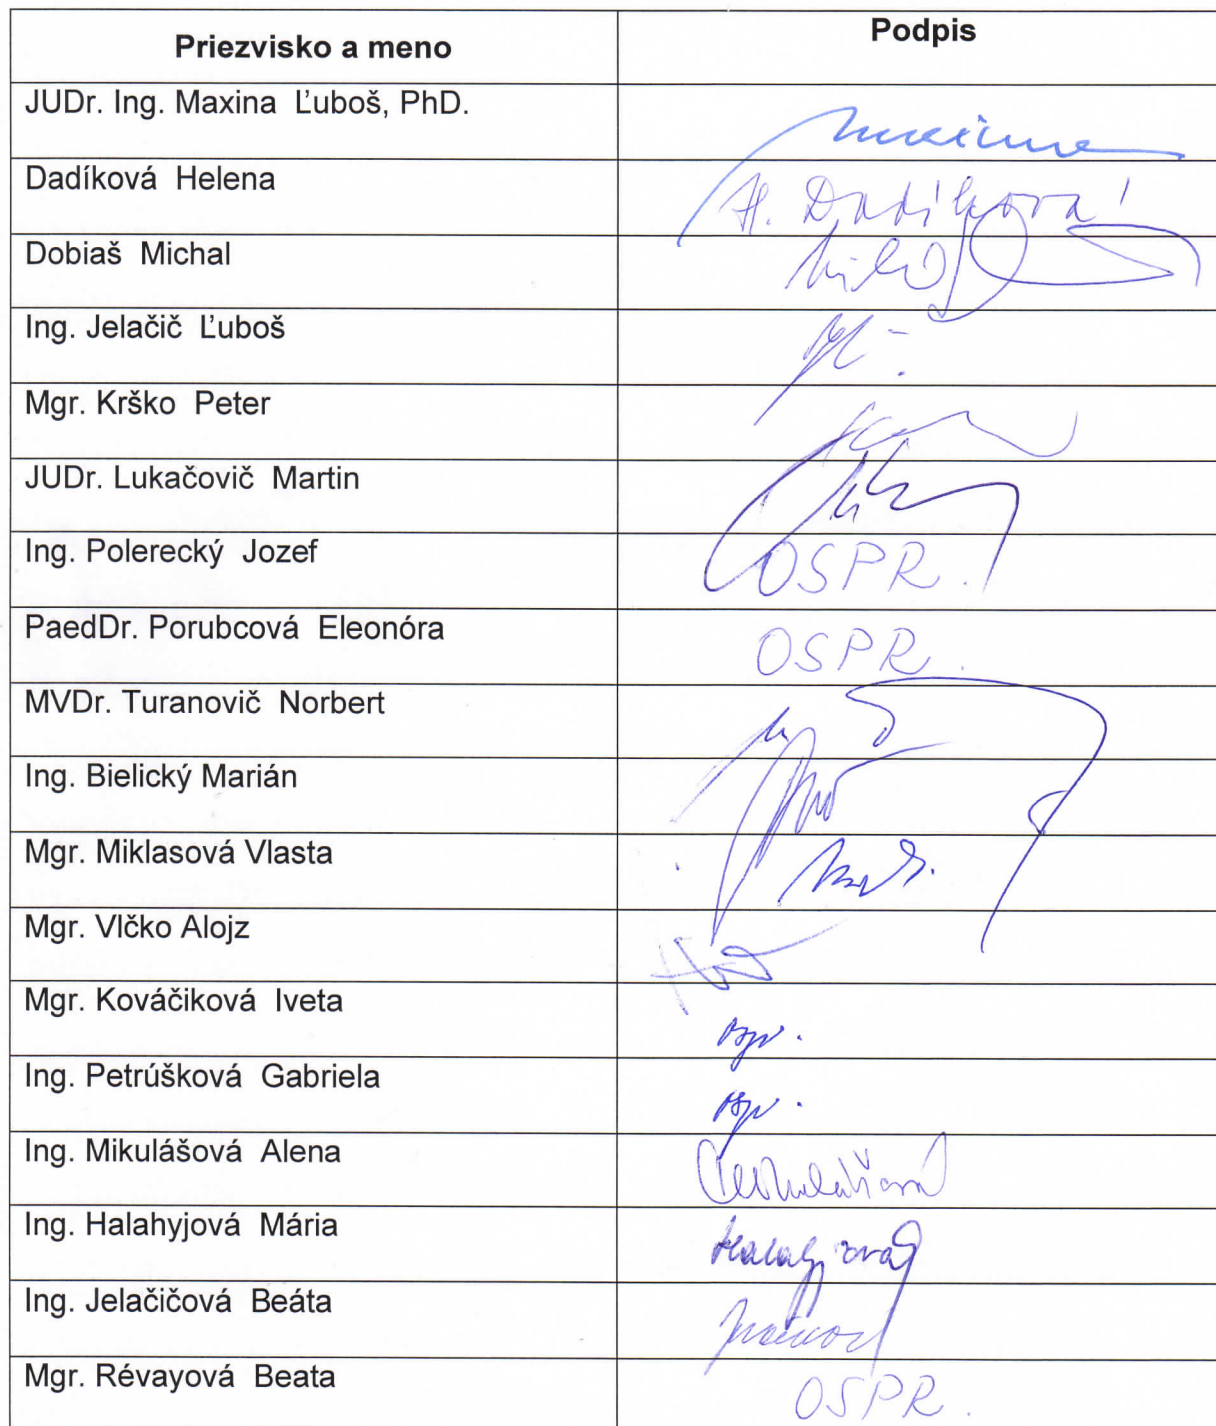 Priezvisko a meno Podpis
JUDr. Ing. Maxina Ľuboš, PhD.
Dadíková Helena H. Dadíková
Dobiaš Michal
Ing. Jelačič Ľuboš
Mgr. Krško Peter
JUDr. Lukačovič Martin
Ing. Polerecký Jozef OSPR.
PaedDr. Porubcová Eleonóra OSPR.
MVDr. Turanovič Norbert
Ing. Bielický Marián
Mgr. Miklasová Vlasta
Mgr. Vlčko Alojz
Mgr. Kováčiková Iveta ospr.
Ing. Petrúšková Gabriela ospr.
Ing. Mikulášová Alena Mikulášová
Ing. Halahyjová Mária Halahyjová
Ing. Jelačičová Beáta
Mgr. Révayová Beata OSPR.